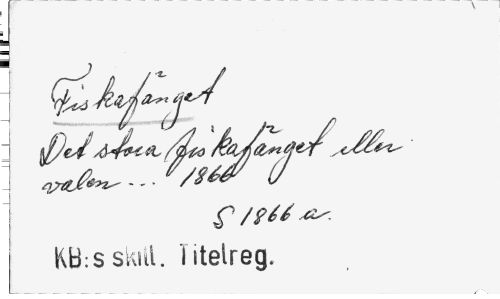 Fiskafänget
Det stora fiskafänget eller
valen... 1866
S 1866 a.
KB:s skill. Titelreg.